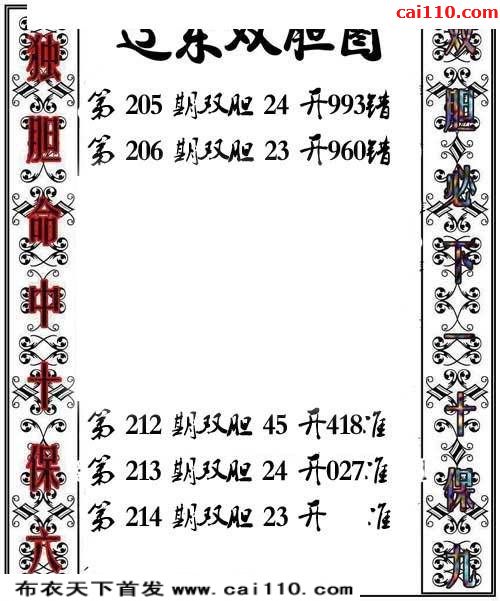 cai110.com
辽东双胆图
独胆命中十保六
双胆必下一十保九
第 205 期双胆 24 开993错
第 206 期双胆 23 开960错
第 212 期双胆 45 开418准
第 213 期双胆 24 开027准
第 214 期双胆 23 开 准
布衣天下首发 www.cai110.com